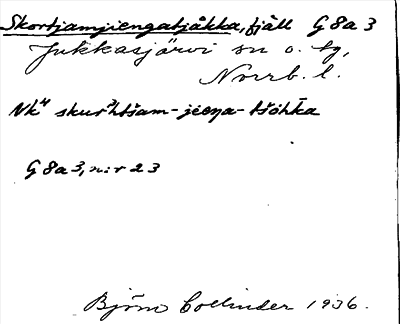 Skortjamjiengatjåkka, fjäll G 8a 3
Jukkasjärvi sn o. tg,
Norrb. l.
Nk⁴ skurʰtšam-jeeŋa-tšohka
G 8a 3, n:r 23
Björn Collinder 1936.